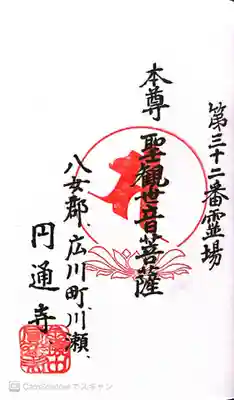 第三十二番霊場
本尊 聖観世音菩薩
八女郡、広川町川瀬、
円通寺
CamScannerでスキャン